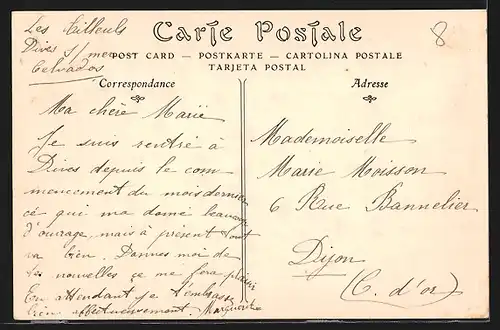 Les Tilleuls
Dives s/mer
Calvados
8
Carte Postale
POST CARD — POSTKARTE — CARTOLINA POSTALE
TARJETA POSTAL
Correspondance
Ma chère Marie
Je suis rentré à
Dives depuis le com
mencement du mois dernier
cé qui ma donné beaucoup
d'ouvrage, mais à présent tout
va bien. Donnes moi de
tes nouvelles ça me fera plaisir
En attendant je t'embrasse
bien affectueusement. Marguerite
Adresse
Mademoiselle
Marie Moisson
6 Rue Bannelier
Dijon
(C. d'or)